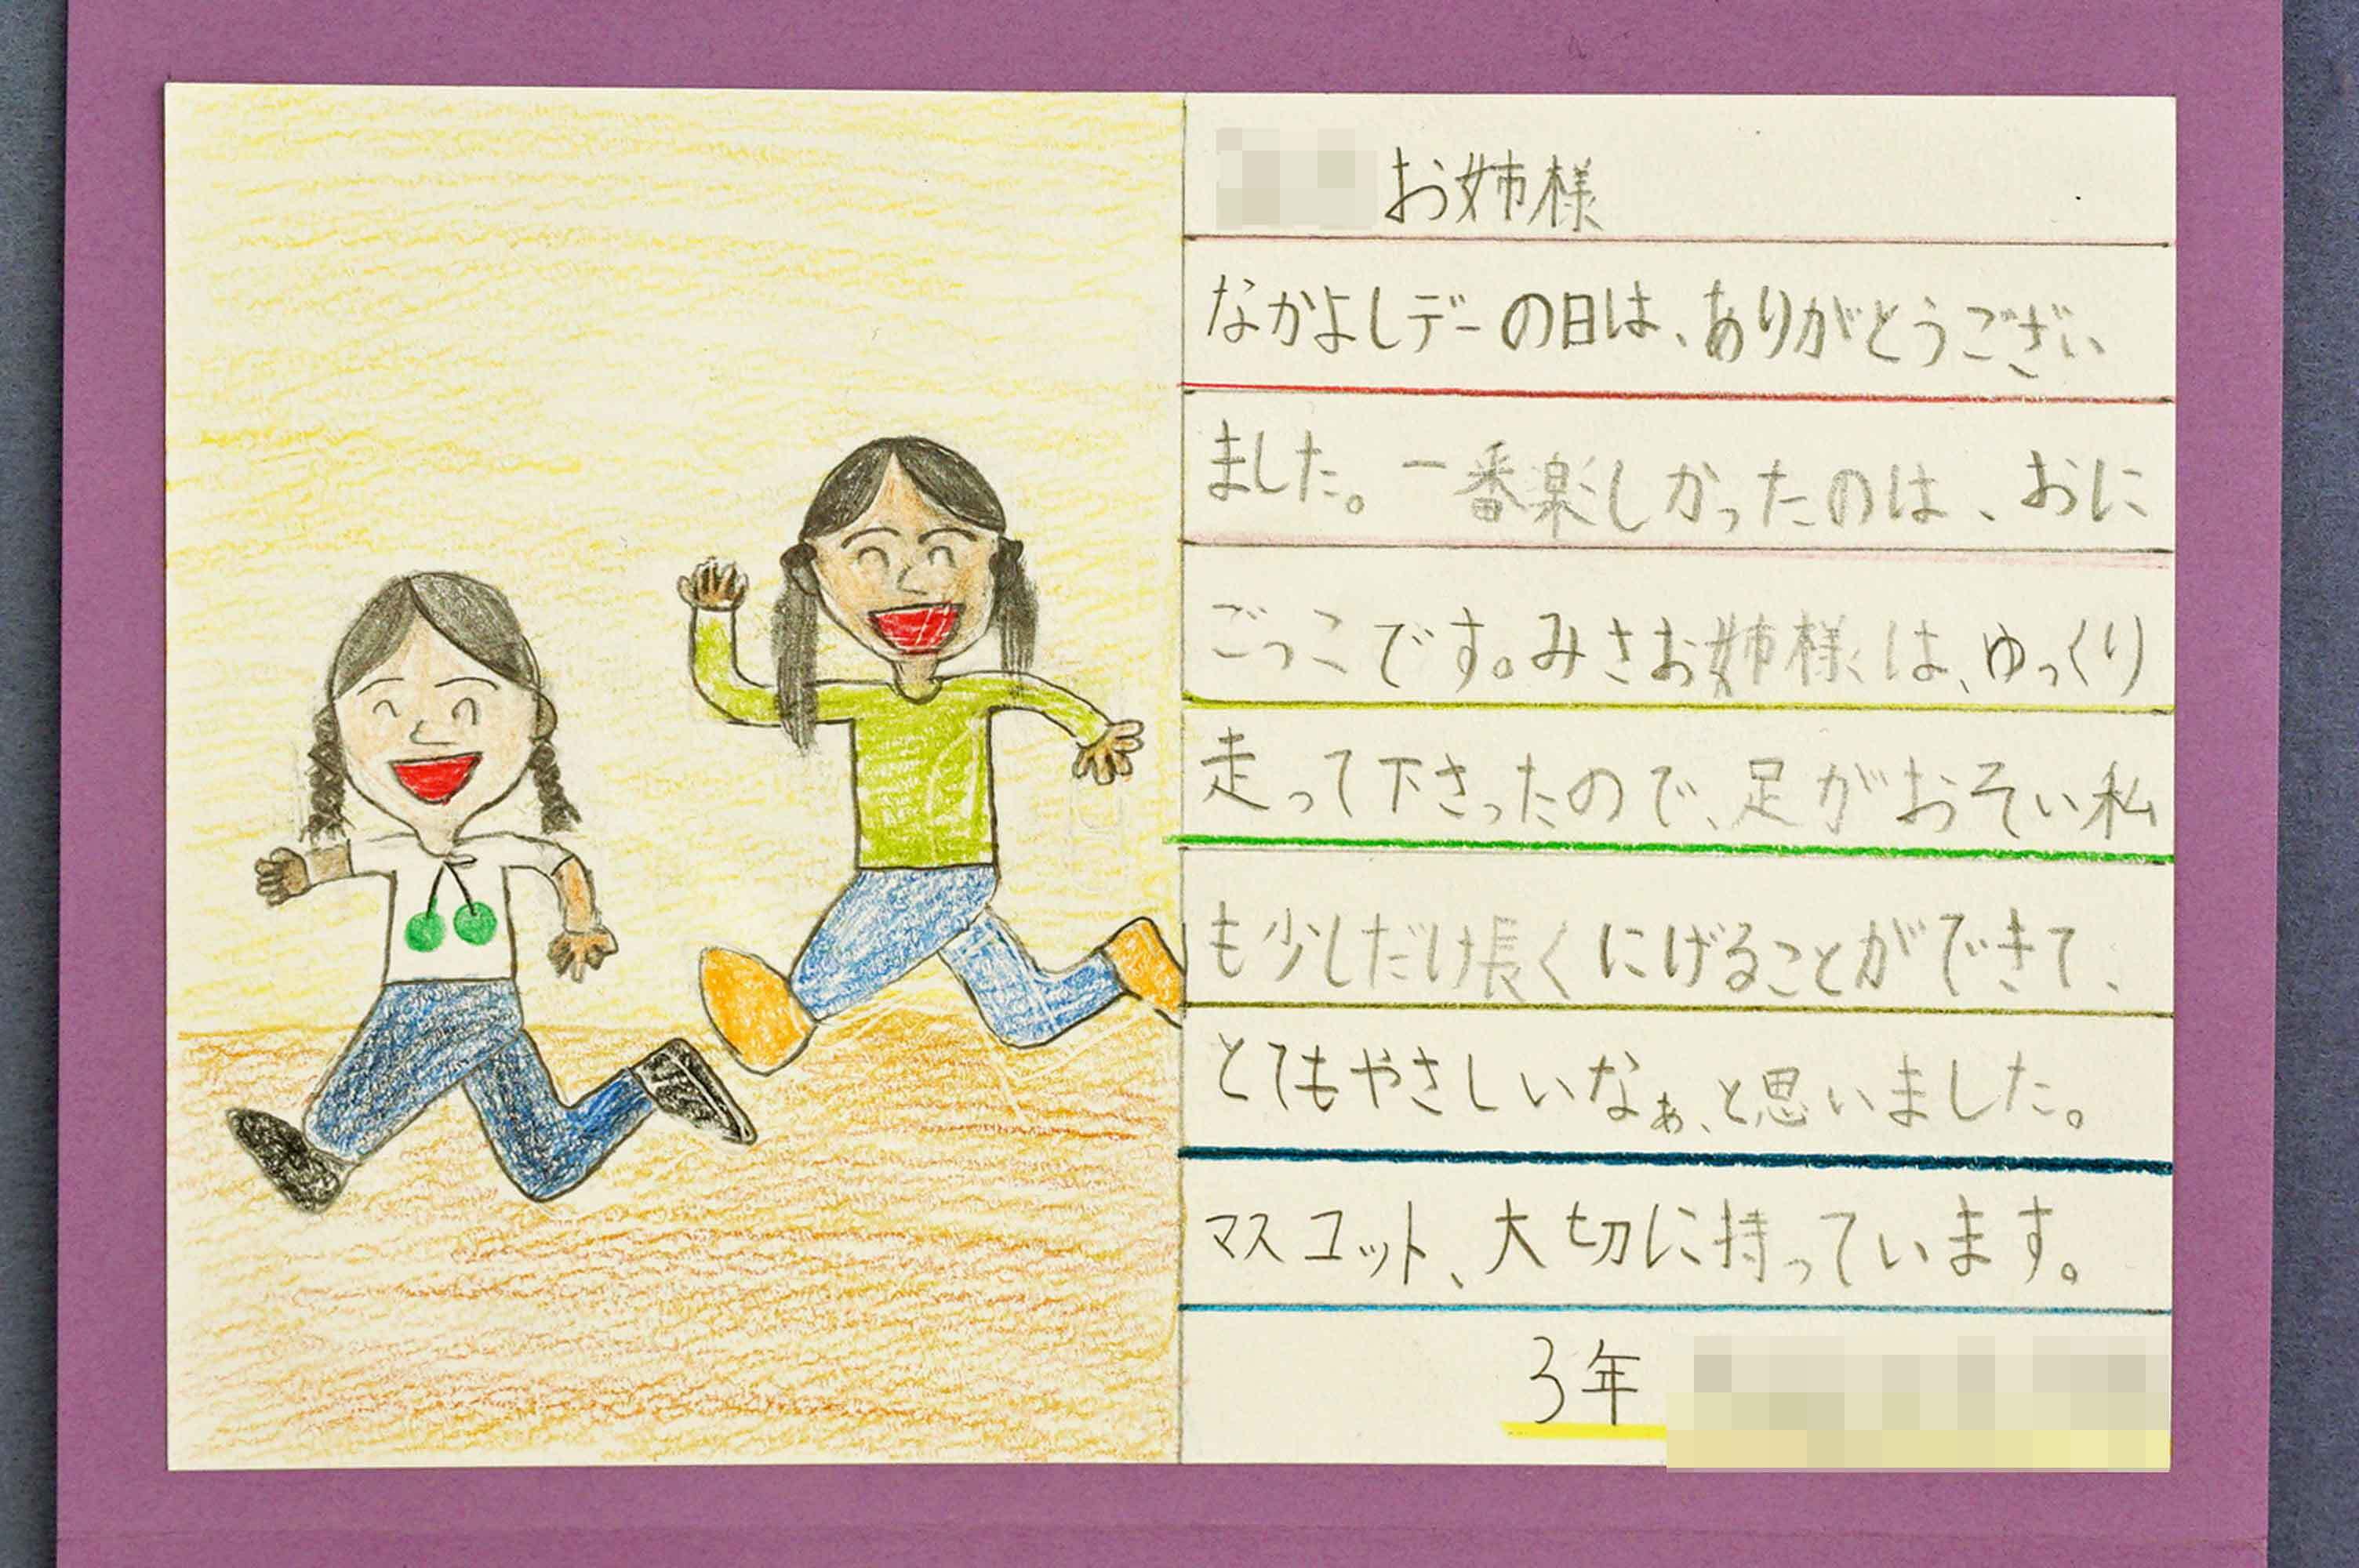 お姉様
なかよしデーの日は、ありがとうござい
ました。一番楽しかったのは、おに
ごっこです。みさお姉様は、ゆっくり
走って下さったので、足がおそい私
も少しだけ長くにげることができて、
とてもやさしいなぁ、と思いました。
マスコット、大切に持っています。
3年